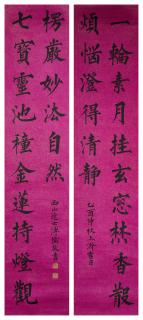 一輪素月挂玄窓焚香散
煩惱澄得清靜
乙酉仲秋上浣
七寶靈池穜金蓮持燈觀
楞嚴妙法自然
西山逸士溥儒敬書